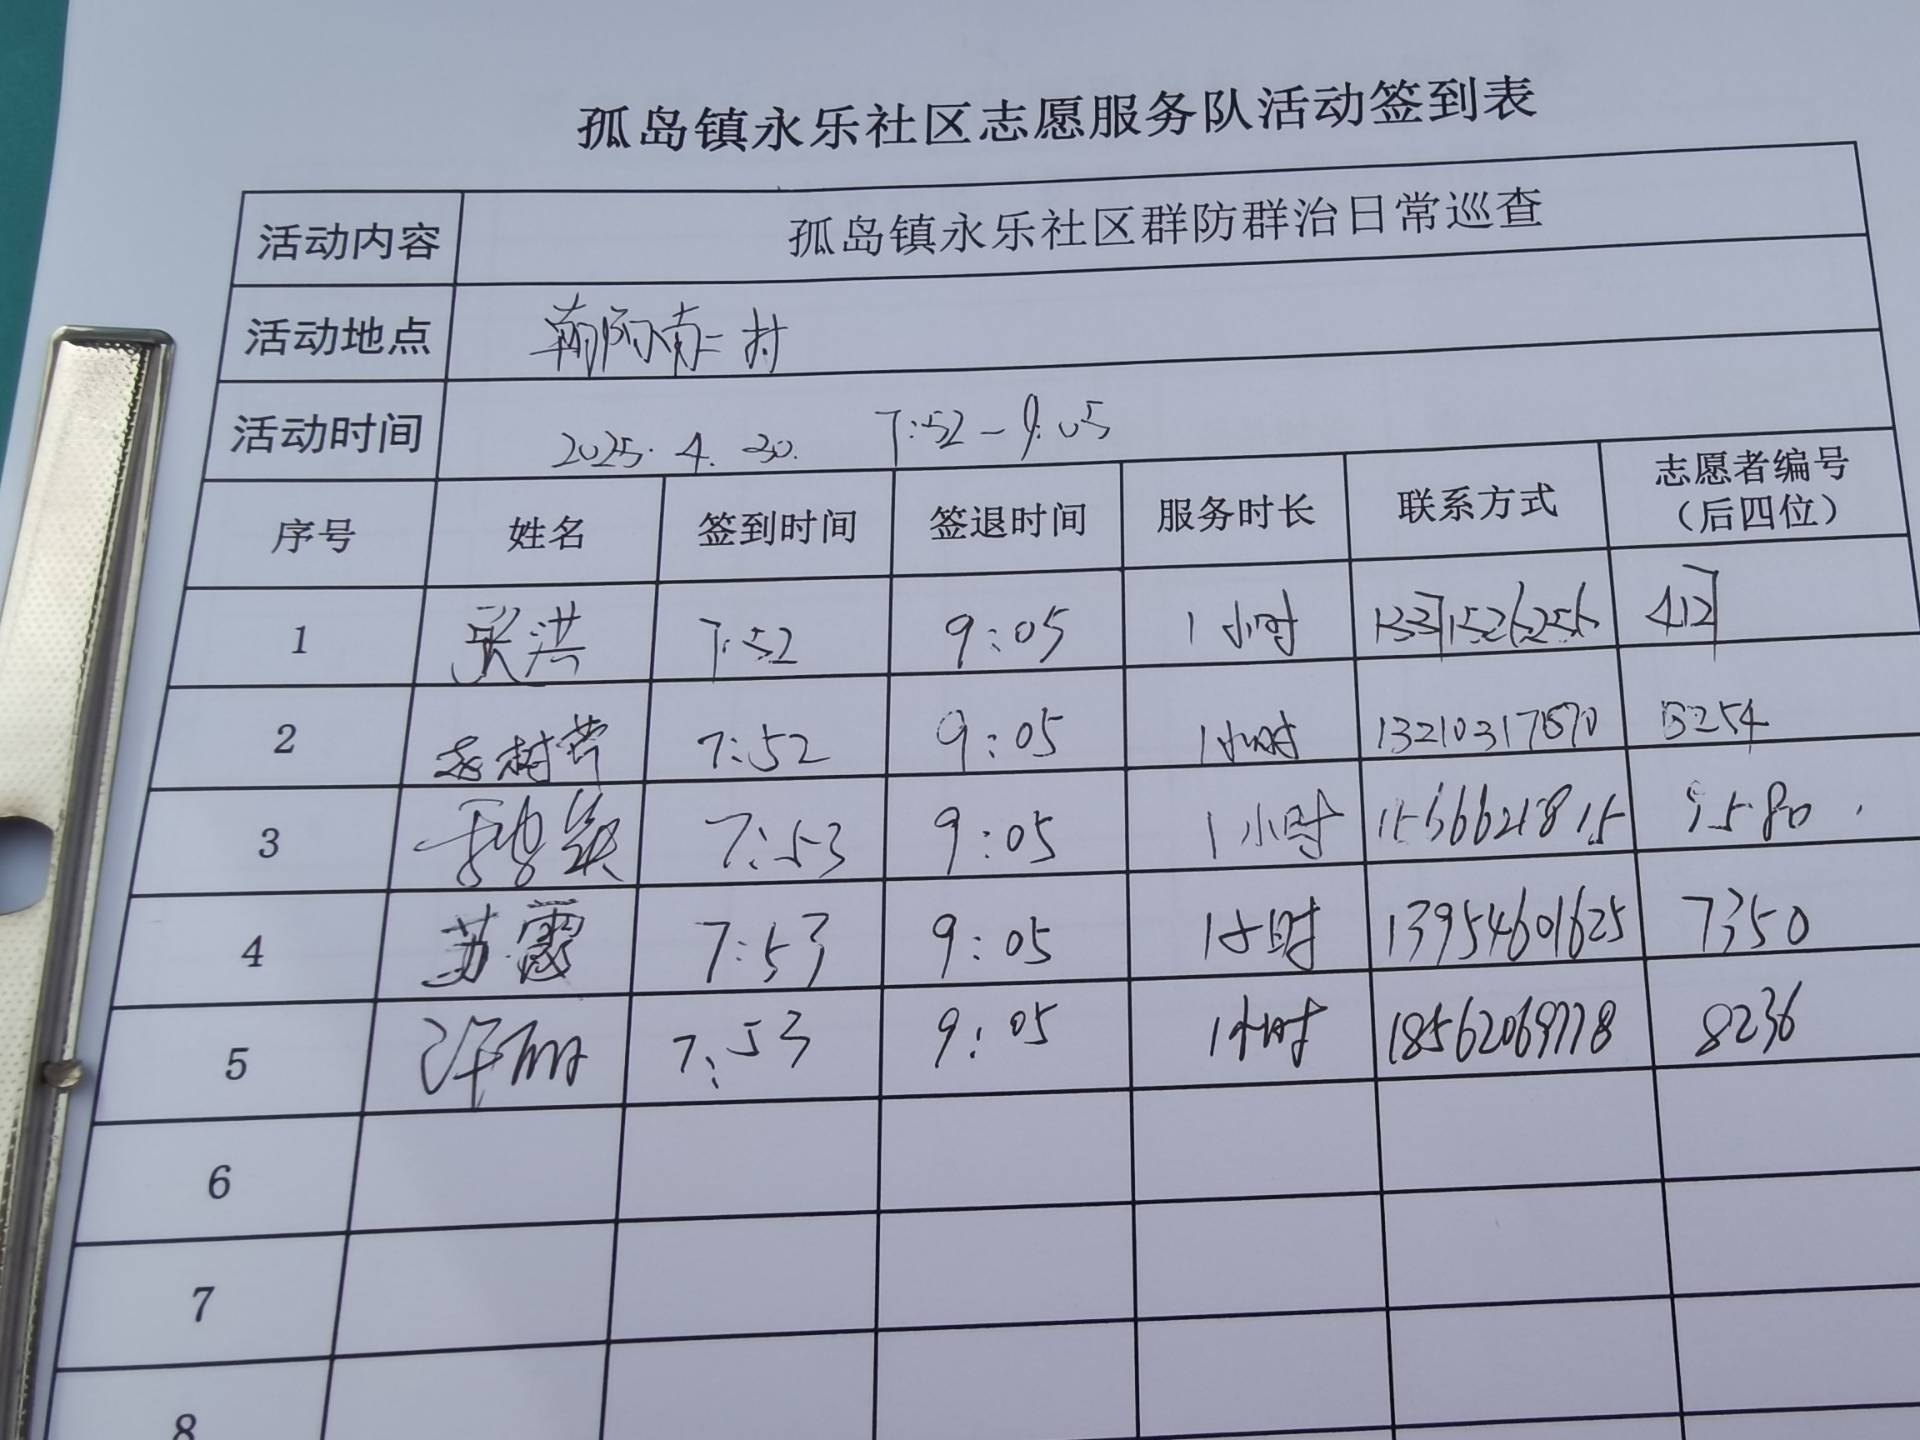 孤岛镇永乐社区志愿服务队活动签到表
活动内容 孤岛镇永乐社区群防群治日常巡查
活动地点 南二村
活动时间 2025.4.30. 7:52-9:05
序号 姓名 签到时间 签退时间 服务时长 联系方式 志愿者编号
（后四位）
1 张洪 7:52 9:05 1小时 13371526256 4127
2 7:52 9:05 1小时 3254
3 7:53 9:05 1小时 9580
4 苏霞 7:53 9:05 1小时 13954601625 7350
5 许丽 7:53 9:05 1小时 18562069778 8236
6
7
8